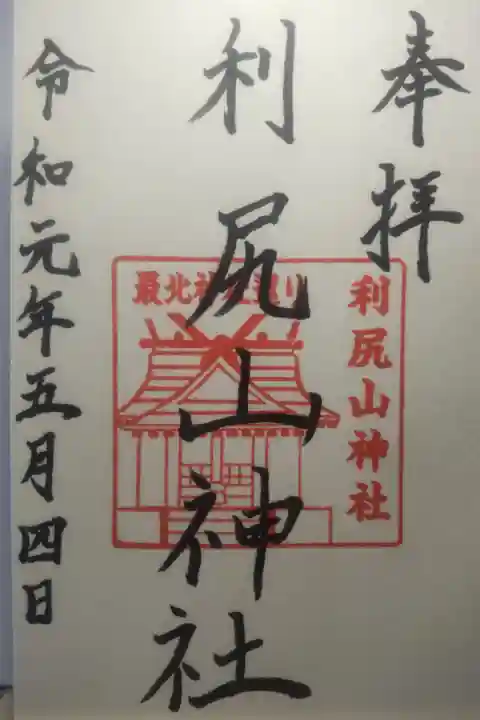 奉拝
利尻山神社
最北神社巡り
利尻山神社
令和元年五月四日